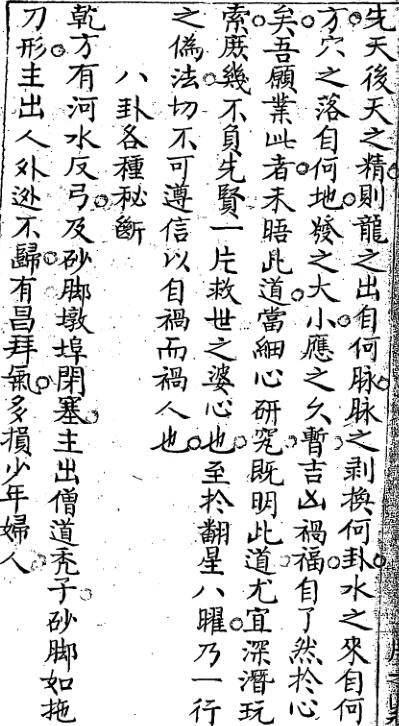 先天後天之精則龍之出自何脉脉之剥換何卦水之來自何
方穴之落自何地發之大小應之久暫吉凶禍福自了然於心
矣吾願業此者未晤此道當細心研究既明此道尤宜深潛玩
索庶幾不負先賢一片救世之婆心也至於翻星八曜乃一行
之僞法切不可遵信以自禍而禍人也
八卦各種秘斷
乾方有河水反弓及砂脚墩埠閉塞主出僧道禿子砂脚如拖
刀形主出人外逃不歸有昌拜氣多損少年婦人